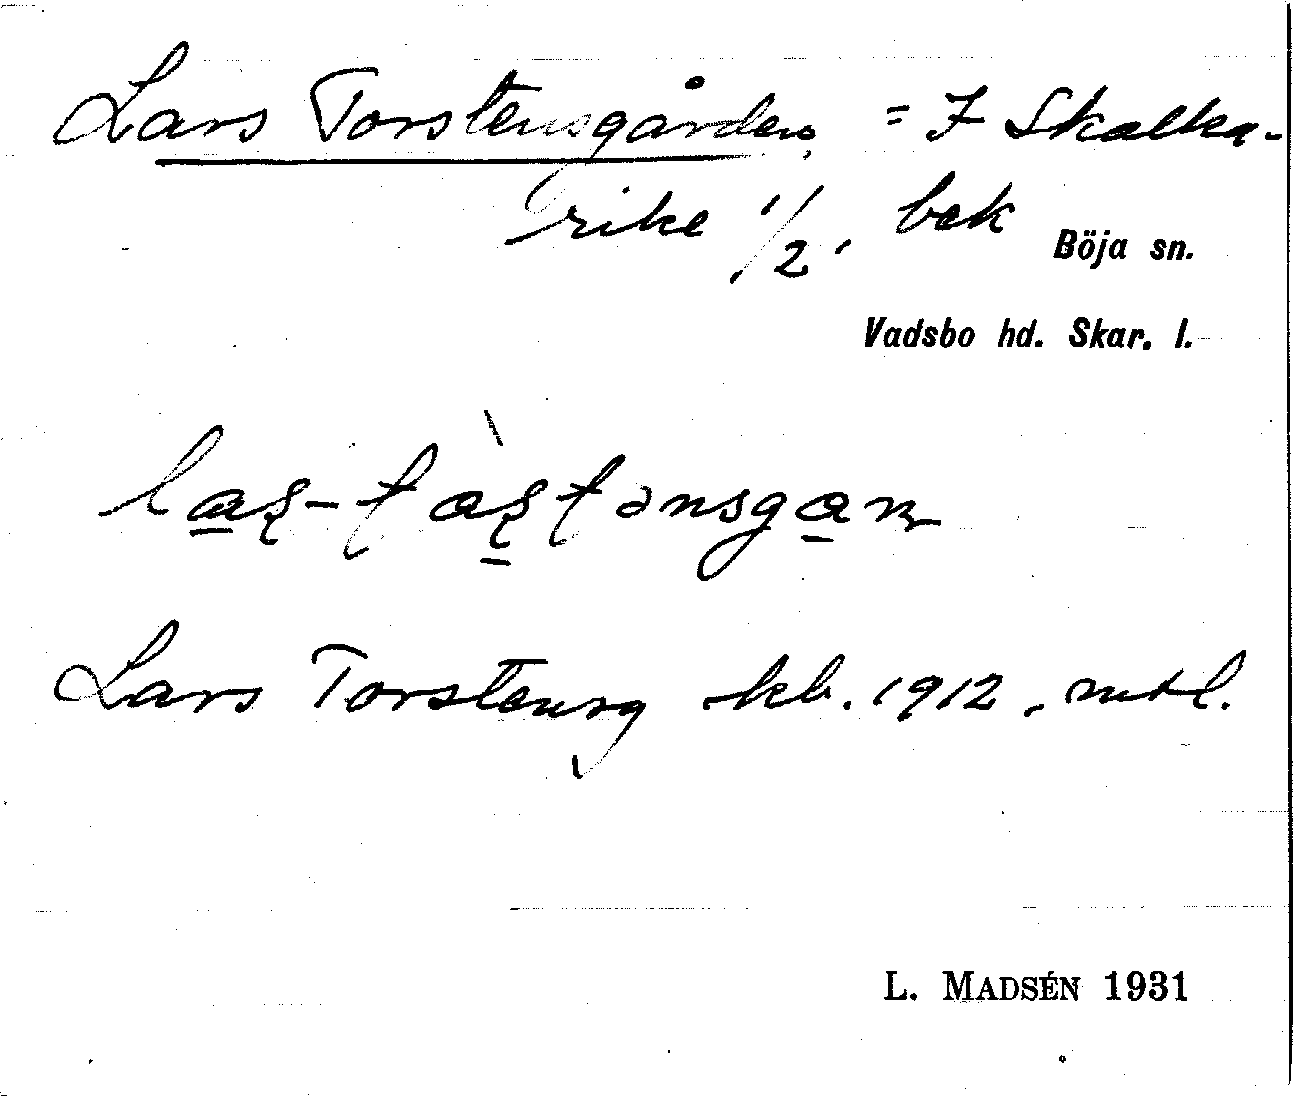 Lars Torstensgården, = I Skalka-
rike 1/2, bek
Böja sn.
Vadsbo hd. Skar. l.
Lars Torstensg kb. 1912, mtl.
L. MADSÉN 1931